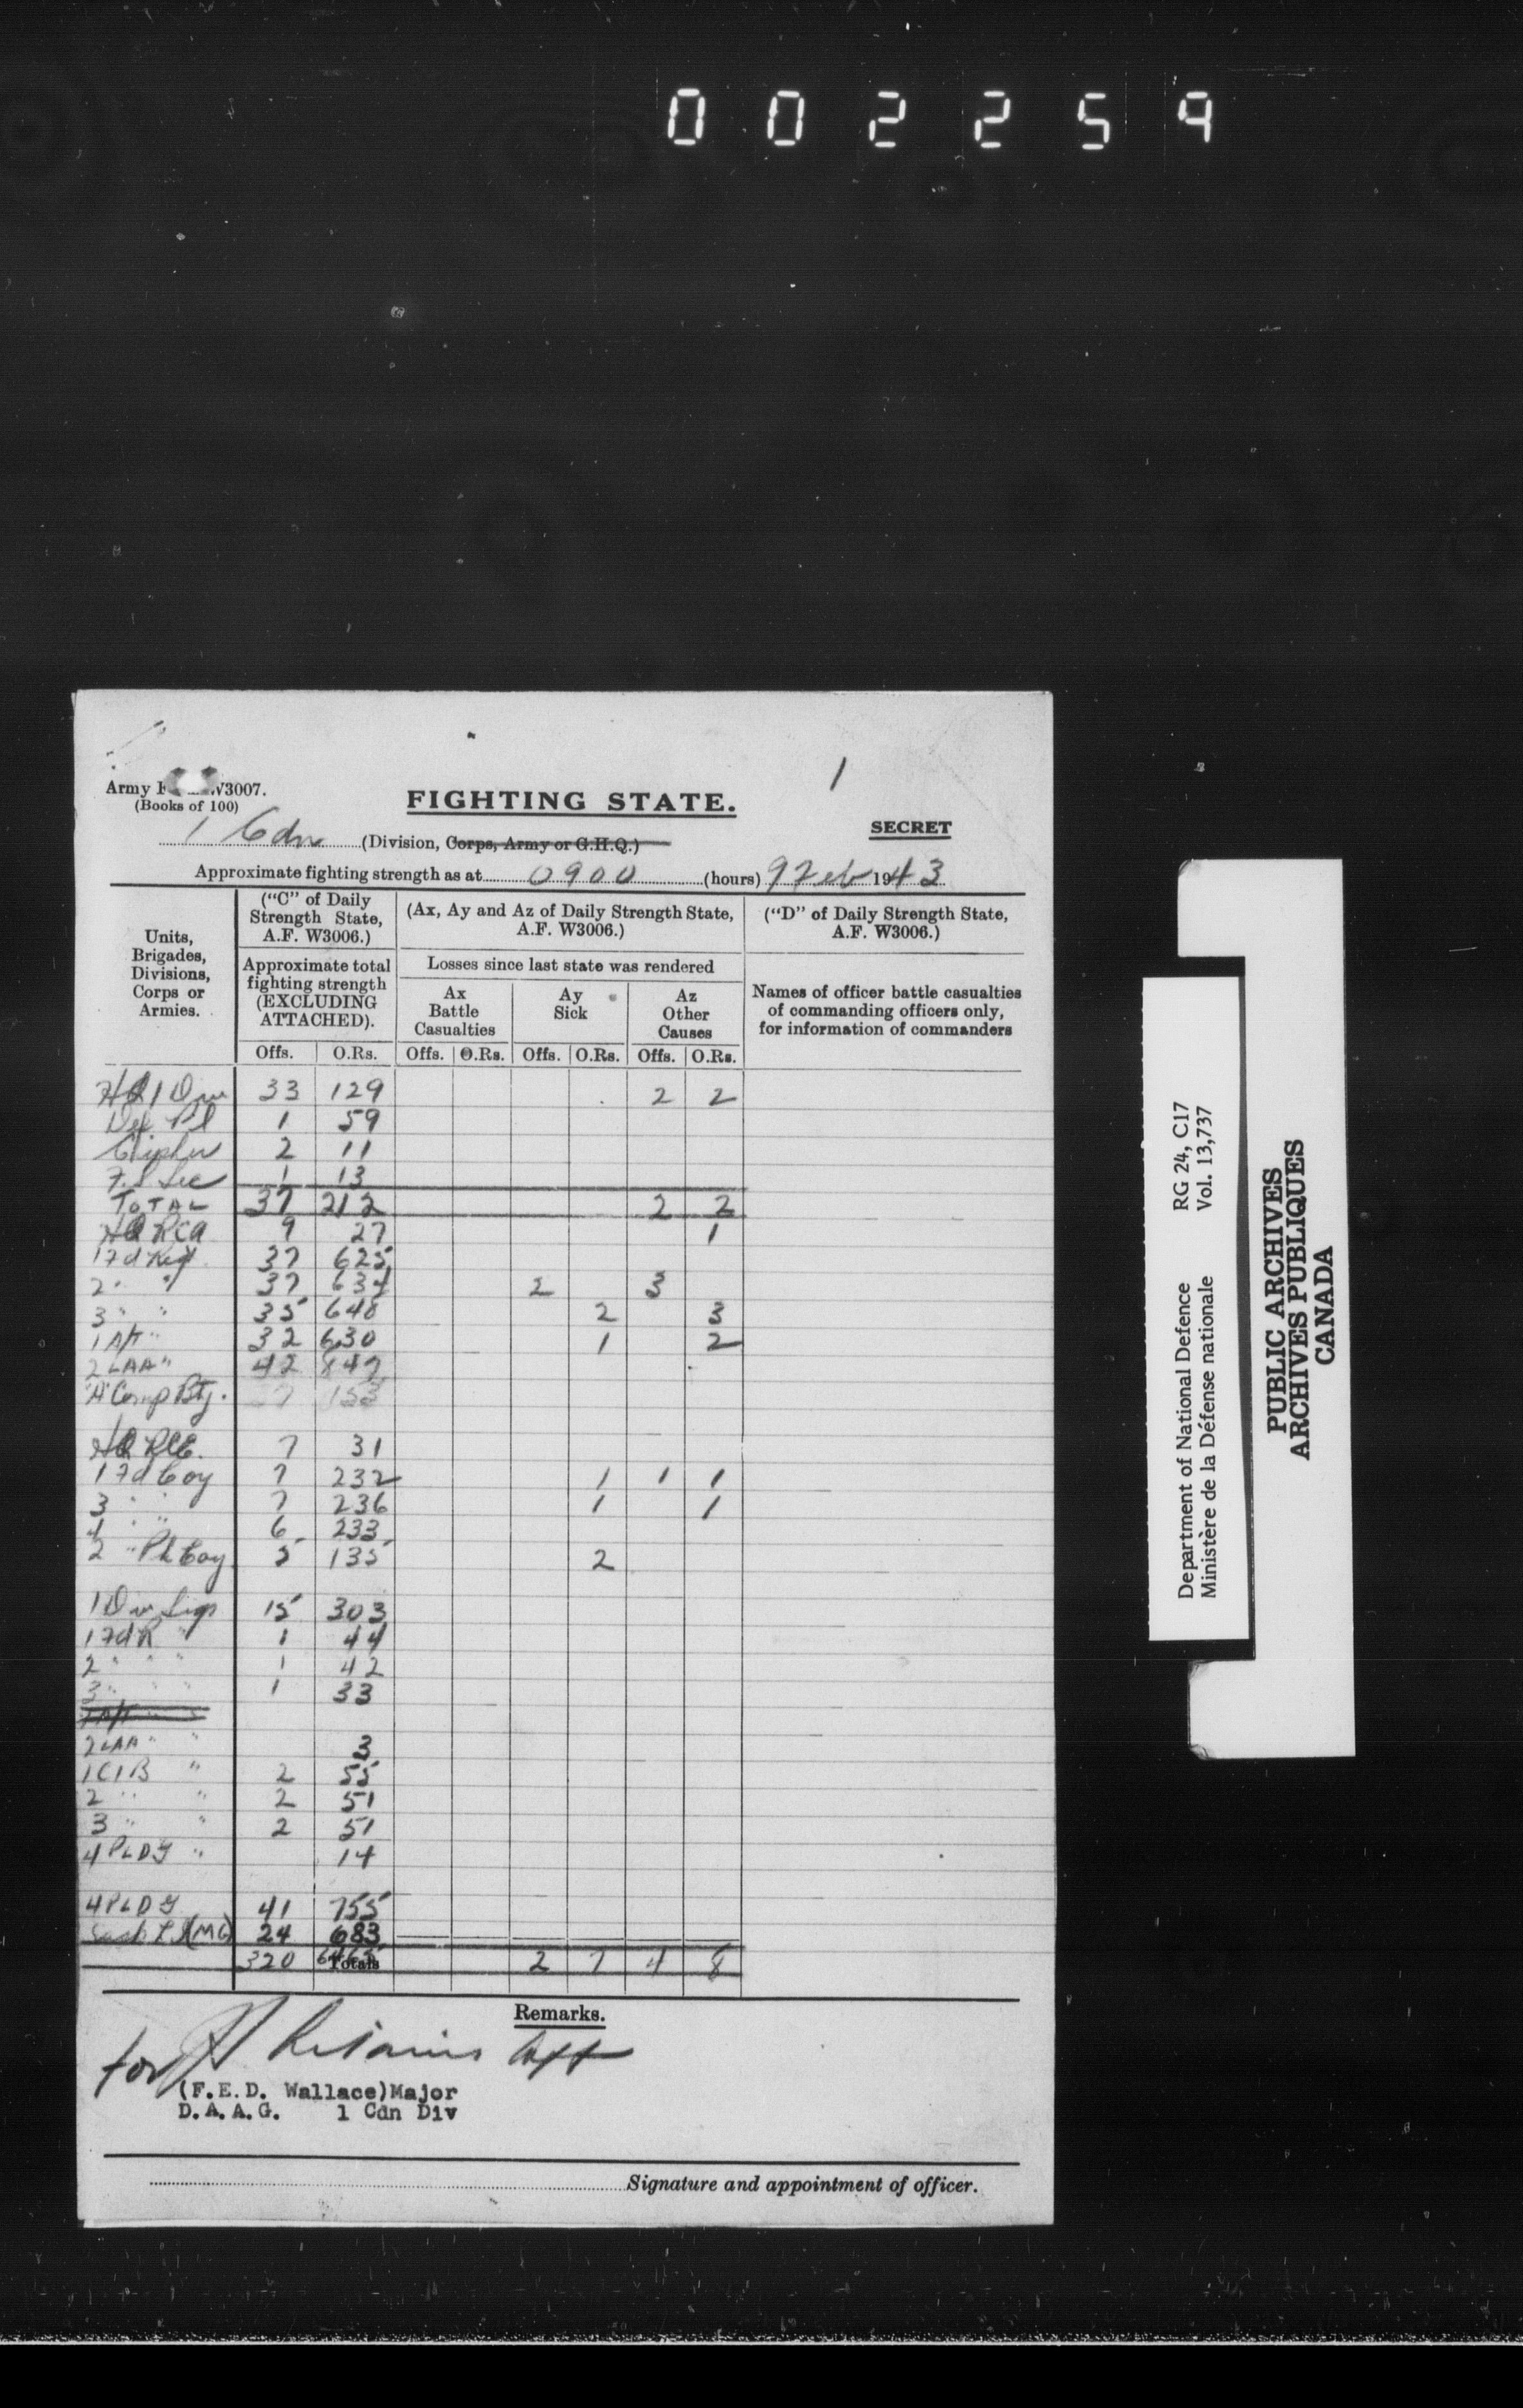 002259
1
Army F W3007.
(Books of 100)
FIGHTING STATE.
SECRET
1 Cdn (Division, Corps, Army or G.H.Q.)
Approximate fighting strength as at 0900 (hours) 9 Feb 1943
Units, Brigades, Divisions, Corps or Armies.
("C" of Daily Strength State, A.F. W3006.)
(Ax, Ay and Az of Daily Strength State, A.F. W3006.)
("D" of Daily Strength State, A.F. W3006.)
Approximate total fighting strength (EXCLUDING ATTACHED).
Losses since last state was rendered
Ax Battle Casualties
Ay Sick
Az Other Causes
Names of officer battle casualties of commanding officers only, for information of commanders
Offs. O.Rs. Offs. O.Rs. Offs. O.Rs. Offs. O.Rs.
HQ 1 Div 33 129 2 2
Def Pl 1 59
Cipher 2 11
F.S Sec 1 13
TOTAL 37 212 2 2
HQ RCA 9 27 1
1 Fd Regt 37 625
2 " " 37 634 2 3
3 " " 35 648 2 3
1 A/T " 32 630 1 2
2 LAA " 42 847
"A" Comp Bty. 153
HQ RCE. 7 31
1 Fd Coy 7 232 1 1 1
3 " " 7 236 1 1
4 " " 6 233
2 " Pk Coy 5 135 2
1 Div Sigs 15 303
1 Fd R " 1 44
2 " " " 1 42
3 " " " 1 33
1 A/T
2 LAA " " 3
1 CIB " 2 55
2 " " 2 51
3 " " 2 51
4 PLDG " 14
4 PLDG 41 755
Sask L.I (MG) 24 683
Totals
320 2 7 4 8
Remarks.
for
(F.E.D. Wallace)Major
D.A.A.G. 1 Cdn Div
Signature and appointment of officer.
Department of National Defence RG 24, C17
Ministère de la Défense nationale Vol. 13,737
PUBLIC ARCHIVES
ARCHIVES PUBLIQUES
CANADA